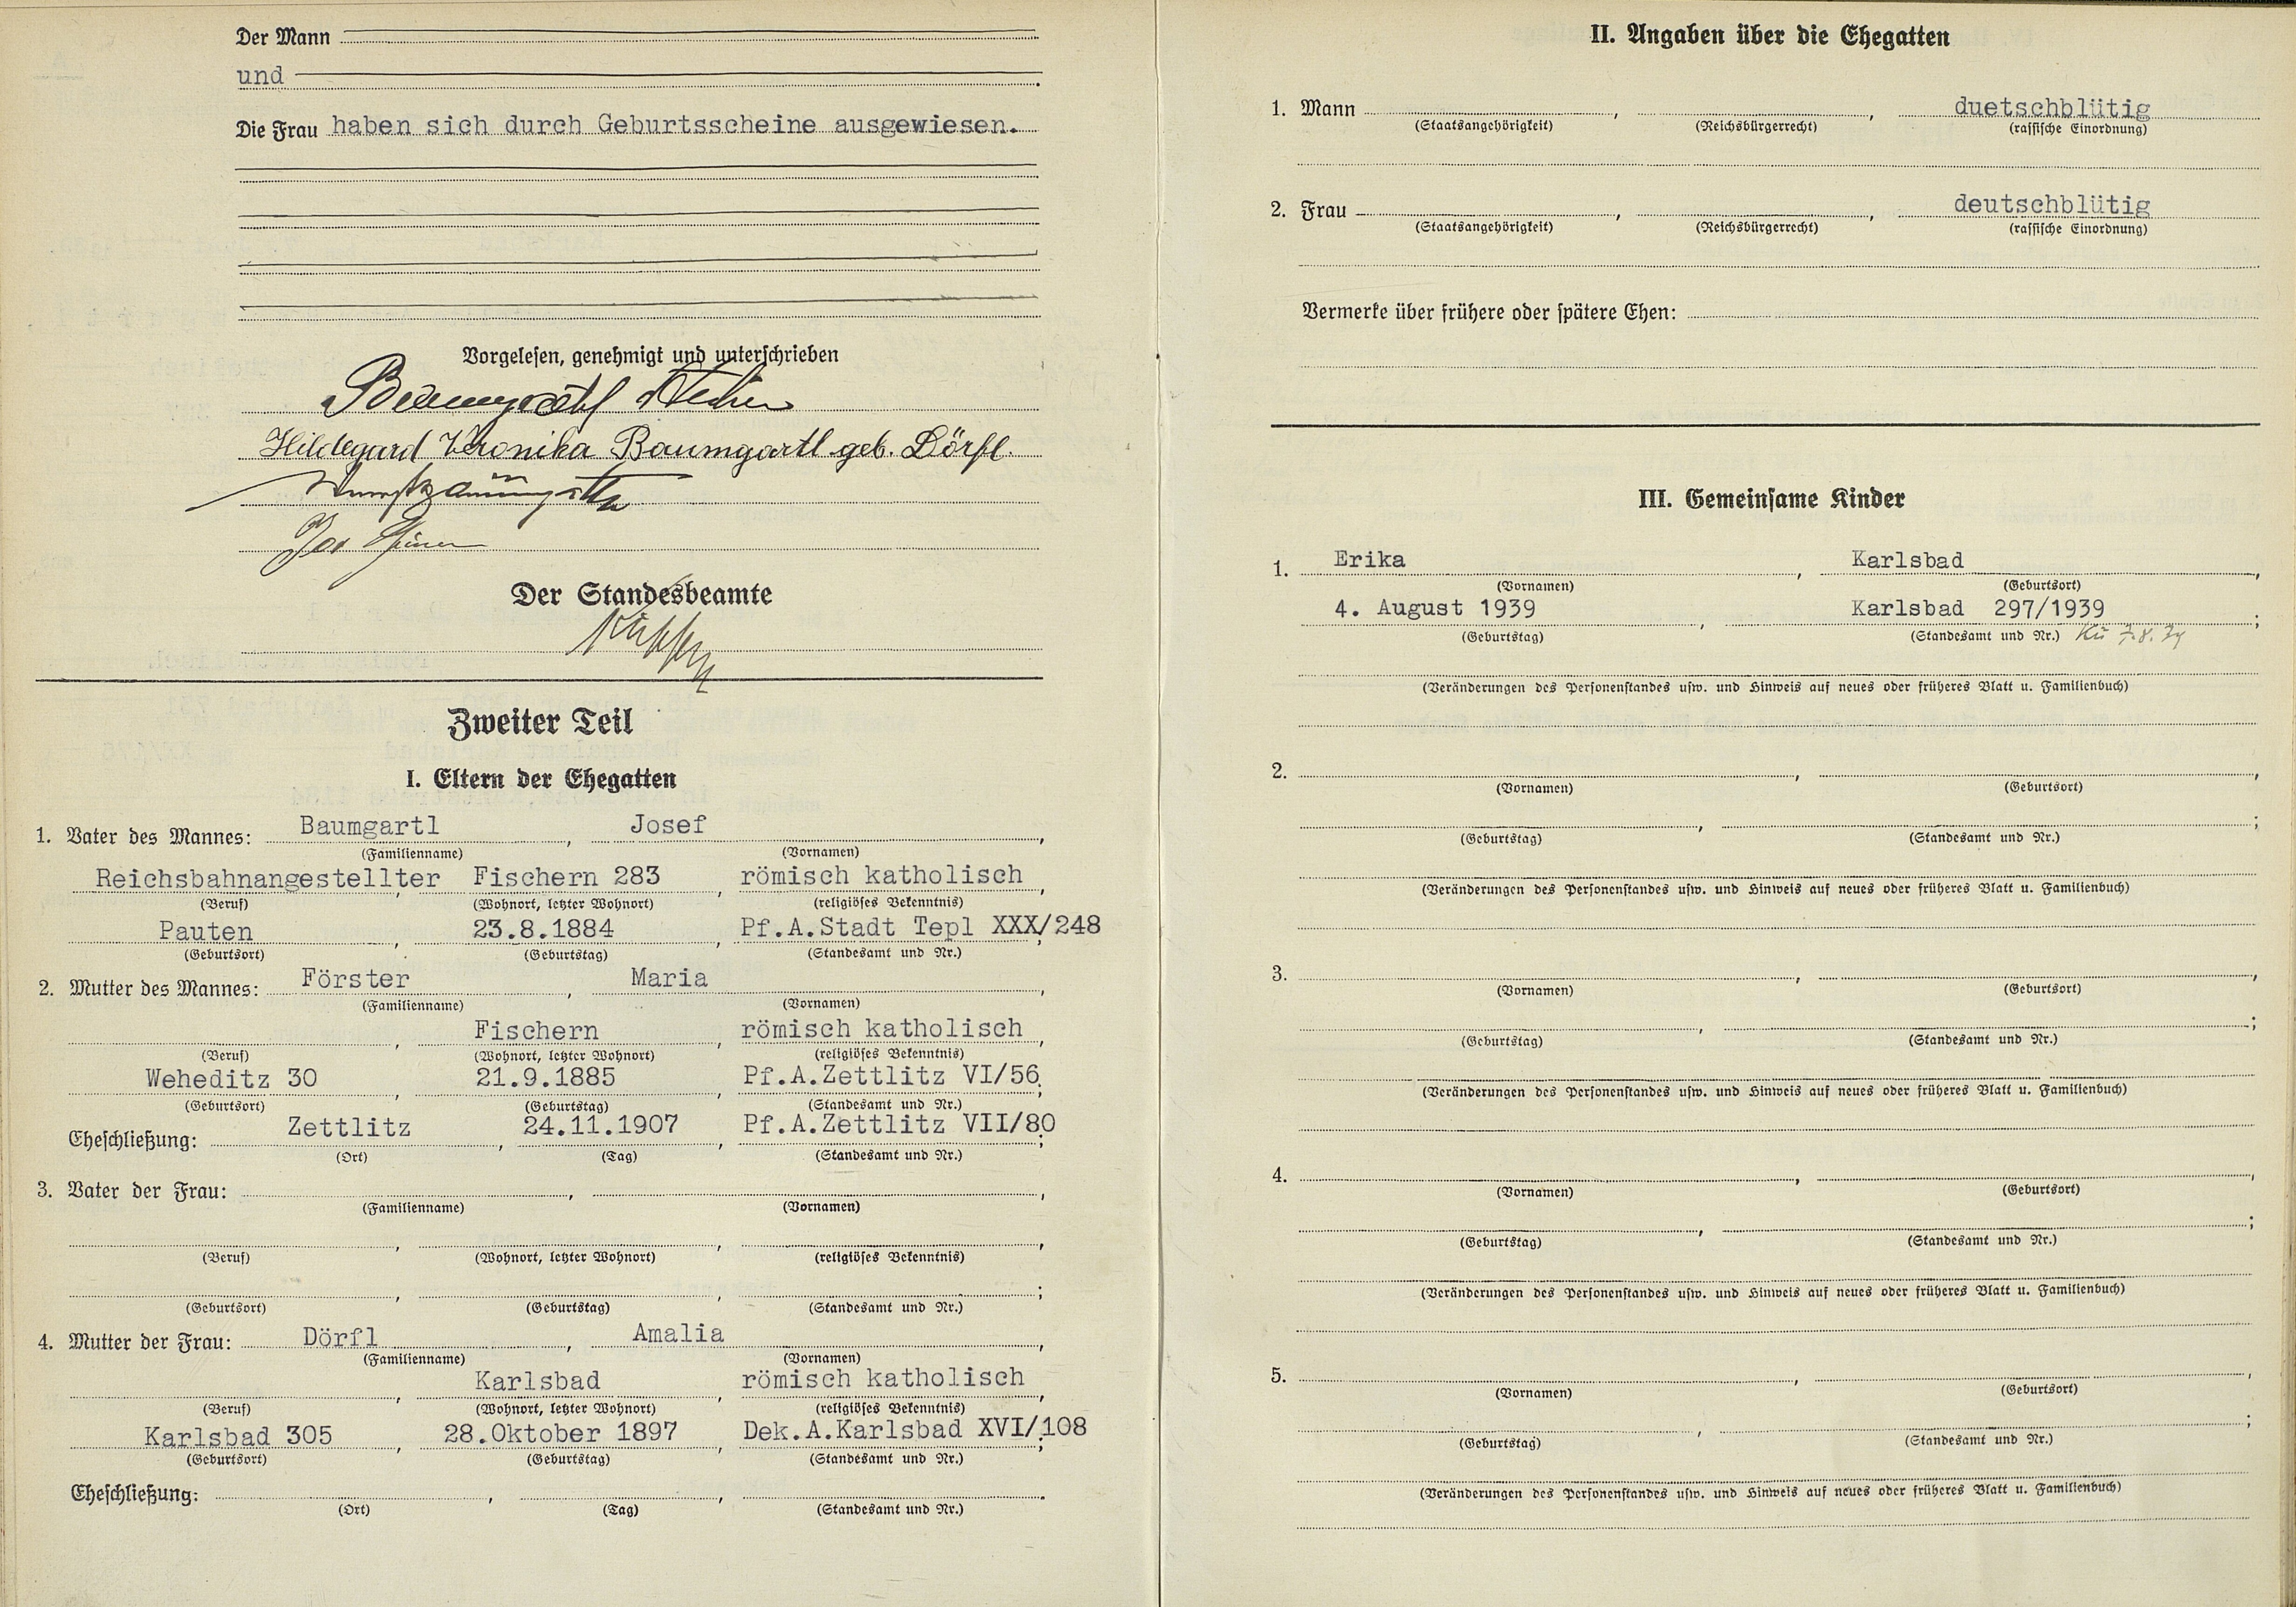 Der Mann
und
Die Frau haben sich durch Geburtsscheine ausgewiesen.
Vorgelesen, genehmigt und unterschrieben
Baumgartl
Hildegard Veronika Baumgartl geb. Dörfl.
Der Standesbeamte
Zweiter Teil
I. Eltern der Ehegatten
1. Vater des Mannes: Baumgartl, Josef,
(Familienname) (Vornamen)
Reichsbahnangestellter, Fischern 283, römisch katholisch,
(Beruf) (Wohnort, letzter Wohnort) (religiöses Bekenntnis)
Pauten, 23.8.1884, Pf.A.Stadt Tepl XXX/248;
(Geburtsort) (Geburtstag) (Standesamt und Nr.)
2. Mutter des Mannes: Förster, Maria,
(Familienname) (Vornamen)
, Fischern, römisch katholisch,
(Beruf) (Wohnort, letzter Wohnort) (religiöses Bekenntnis)
Weheditz 30, 21.9.1885, Pf.A.Zettlitz VI/56;
(Geburtsort) (Geburtstag) (Standesamt und Nr.)
Eheschließung: Zettlitz, 24.11.1907, Pf.A.Zettlitz VII/80;
(Ort) (Tag) (Standesamt und Nr.)
3. Vater der Frau: , ,
(Familienname) (Vornamen)
, , ,
(Beruf) (Wohnort, letzter Wohnort) (religiöses Bekenntnis)
, , ;
(Geburtsort) (Geburtstag) (Standesamt und Nr.)
4. Mutter der Frau: Dörfl, Amalia,
(Familienname) (Vornamen)
, Karlsbad, römisch katholisch,
(Beruf) (Wohnort, letzter Wohnort) (religiöses Bekenntnis)
Karlsbad 305, 28.Oktober 1897, Dek.A.Karlsbad XVI/108;
(Geburtsort) (Geburtstag) (Standesamt und Nr.)
Eheschließung: , , .
(Ort) (Tag) (Standesamt und Nr.)
II. Angaben über die Ehegatten
1. Mann , , duetschblütig
(Staatsangehörigkeit) (Reichsbürgerrecht) (rassische Einordnung)
2. Frau , , deutschblütig
(Staatsangehörigkeit) (Reichsbürgerrecht) (rassische Einordnung)
Vermerke über frühere oder spätere Ehen:
III. Gemeinsame Kinder
1. Erika, Karlsbad,
(Vornamen) (Geburtsort)
4. August 1939, Karlsbad 297/1939;
(Geburtstag) (Standesamt und Nr.)
(Veränderungen des Personenstandes usw. und Hinweis auf neues oder früheres Blatt u. Familienbuch)
2. , ,
(Vornamen) (Geburtsort)
, ;
(Geburtstag) (Standesamt und Nr.)
(Veränderungen des Personenstandes usw. und Hinweis auf neues oder früheres Blatt u. Familienbuch)
3. , ,
(Vornamen) (Geburtsort)
, ;
(Geburtstag) (Standesamt und Nr.)
(Veränderungen des Personenstandes usw. und Hinweis auf neues oder früheres Blatt u. Familienbuch)
4. , ,
(Vornamen) (Geburtsort)
, ;
(Geburtstag) (Standesamt und Nr.)
(Veränderungen des Personenstandes usw. und Hinweis auf neues oder früheres Blatt u. Familienbuch)
5. , ,
(Vornamen) (Geburtsort)
, ;
(Geburtstag) (Standesamt und Nr.)
(Veränderungen des Personenstandes usw. und Hinweis auf neues oder früheres Blatt u. Familienbuch)